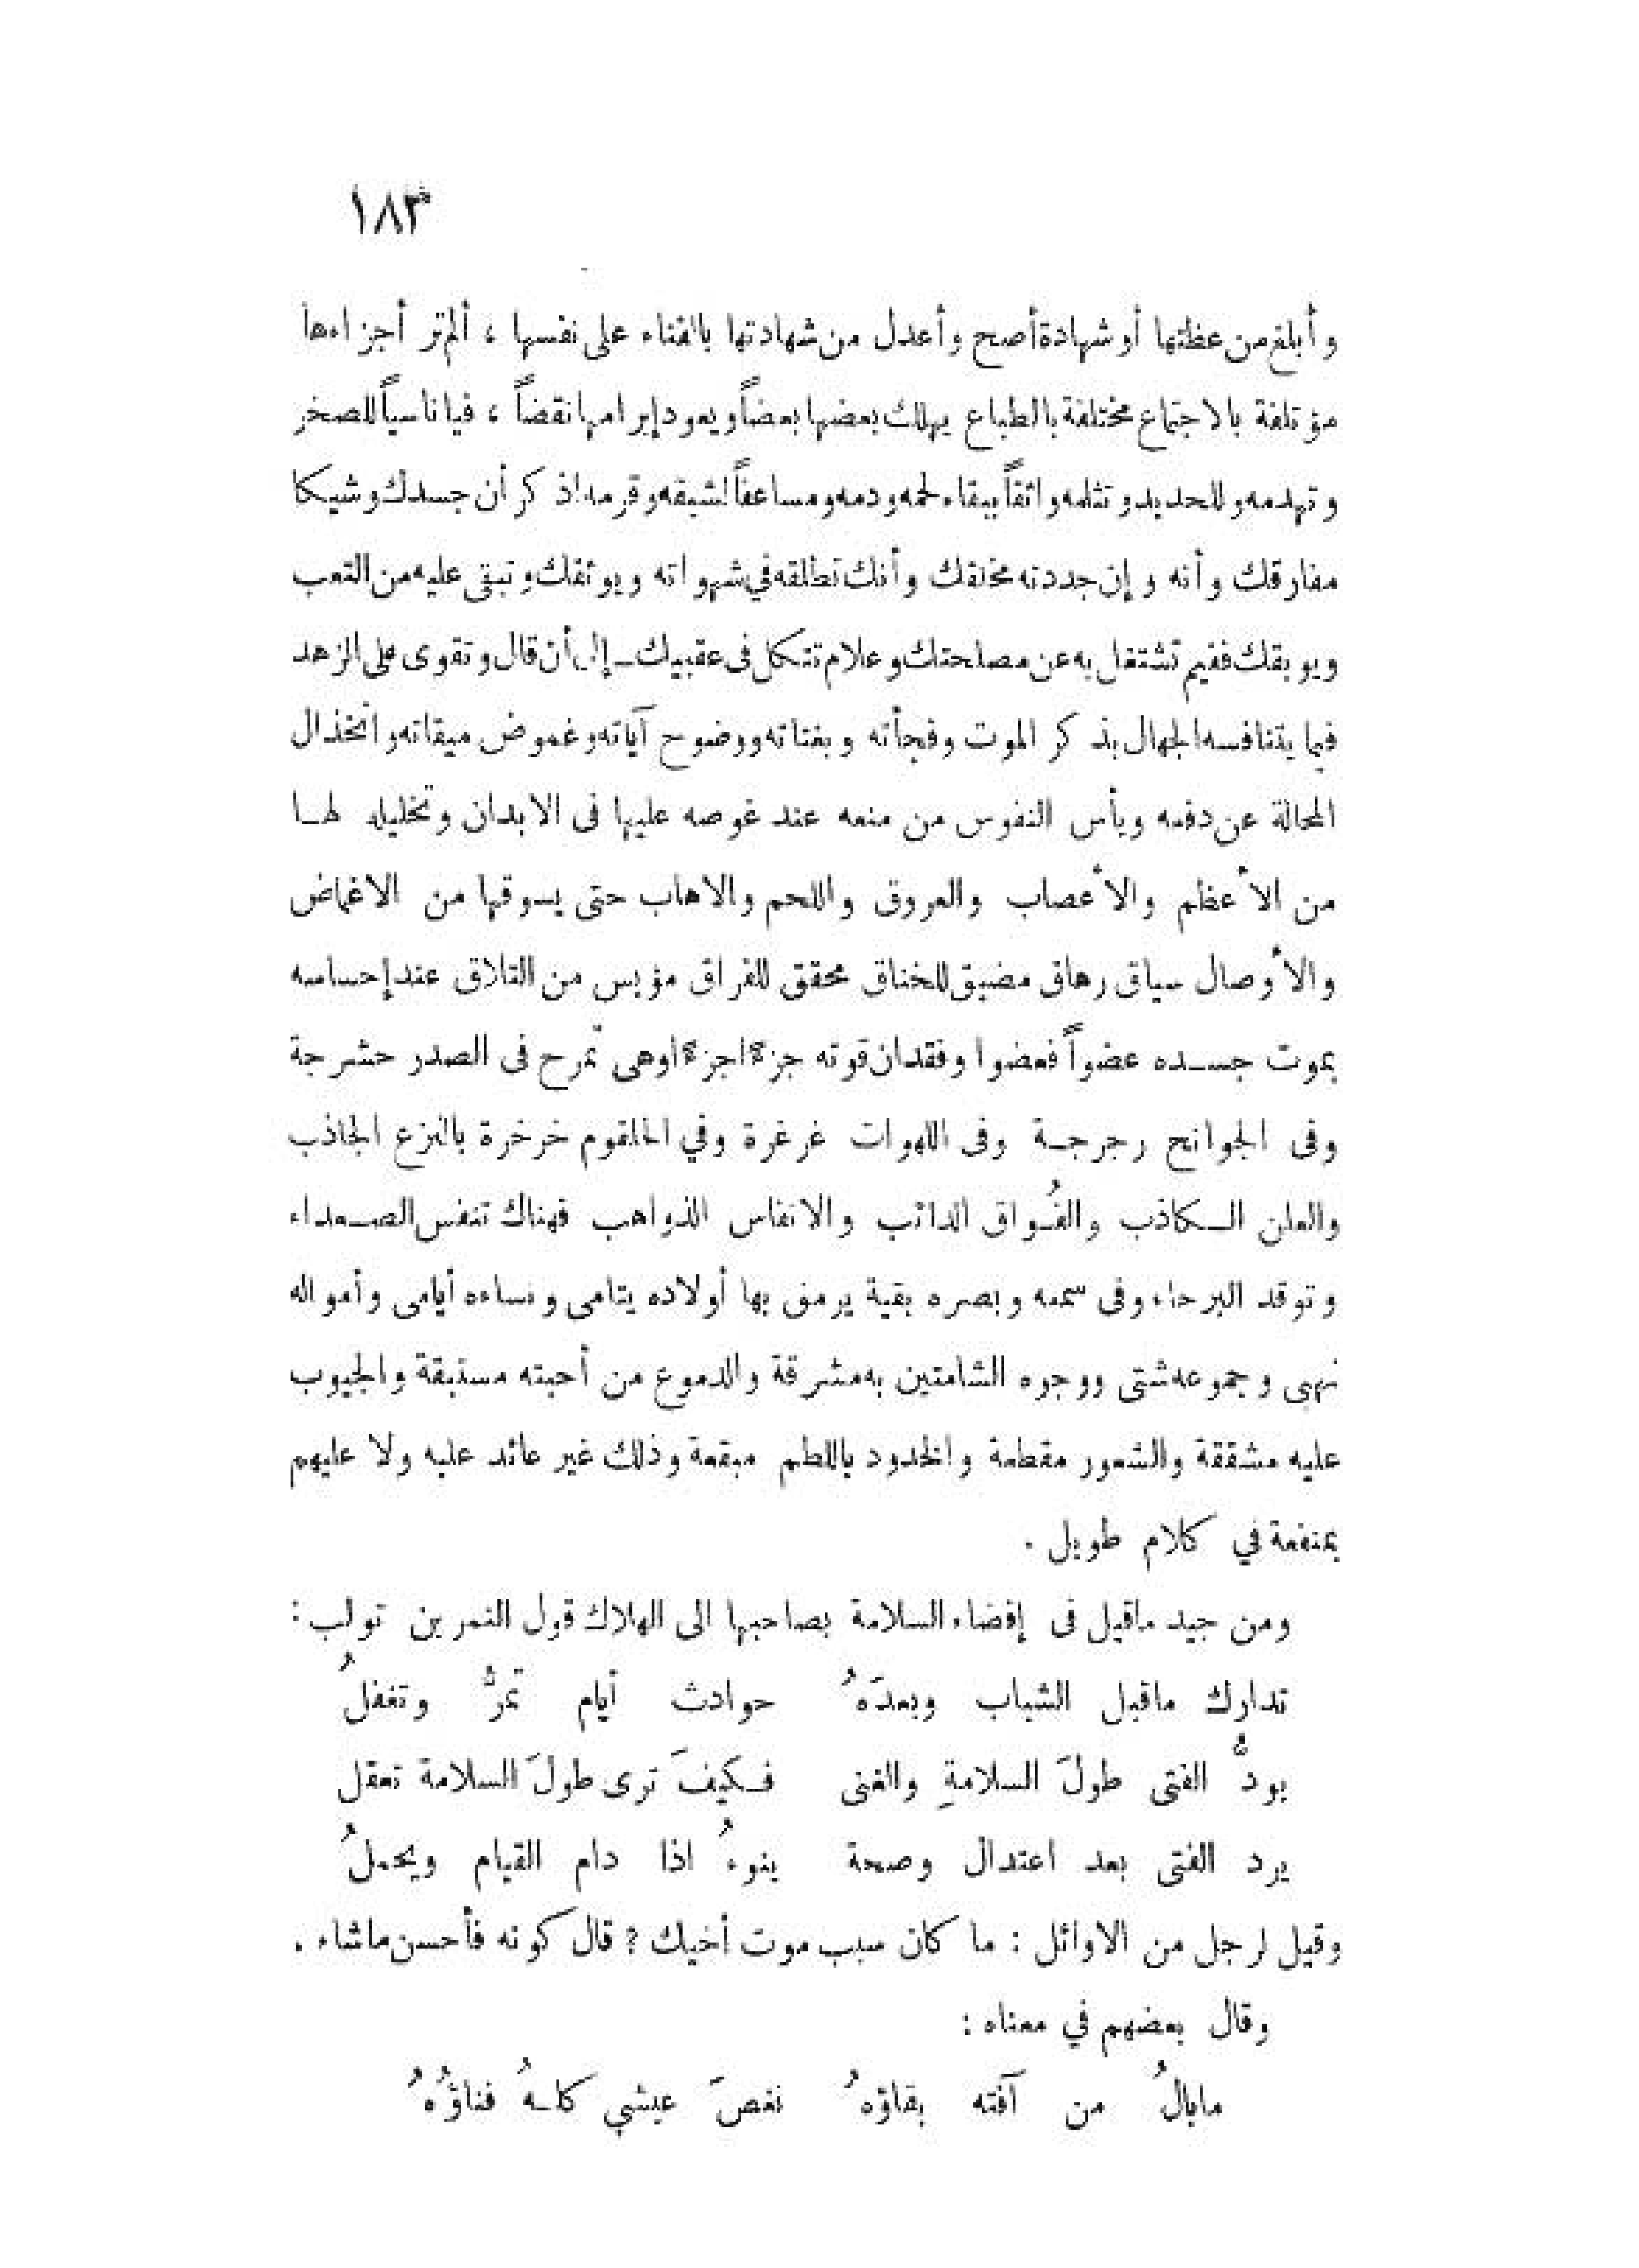 ١٨٣
وأبلغ من عظتها أو شهادة أصح وأعدل من شهادتها بالفناء على نفسها ، ألم تر أجزاءها
مؤتلفة بالاجتماع مختلفة بالطباع يهلك بعضها بعضاً ويعود إبرامها نقضاً ، فيا ناسياً للصخر
وتهدمه وللحديد وتثلمه واثقاً ببقاء لحمه ودمه ومساعفاً لشبقه وقرمه اذكر أن جسدك وشيكا
مفارقك وأنه وإن جددته مخلقك وأنك تطلقه في شهواته ويوثقك وتبقى عليه من التعب
ويوبقك ففيم تشتغل به عن مصلحتك وعلام تتكل فى عقبيك ــ إلى أن قال وتقوى على الزهد
فيما يتنافسه الجهال بذكر الموت وفجأته وبغتاته ووضوح آياته وغموض ميقاته وانخذال
المحالة عن دفعه ويأس النفوس من منعه عند غوصه عليها فى الابدان وتخليله لهـا
من الأعظم والأعصاب والعروق واللحم والاهاب حتى يسوقها من الاغماض
والأوصال سياق رهاق مضيق للخناق محقق للفراق مؤيس من التلاق عند إحساسه
بموت جســده عضواً فعضوا وفقدان قوته جزءًا جزءًا وهى تمرح فى الصدر حشرجة
وفى الجوانح رجرجــة وفى اللهوات غرغرة وفي الحلقوم خرخرة بالنزع الجاذب
والعلن الــكاذب والفُــواق الدائب والانفاس الذواهب فهناك تنفس الصــعداء
وتوقد البرحاء وفى سمعه وبصره بقية يرمق بها أولاده يتامى ونساءه أيامى وأمواله
نهبى وجموعه شتى ووجوه الشامتين به مشرقة والدموع من أحبته مستبقة والجيوب
عليه مشققة والشعور مقطعة والخدود باللطم مبقعة وذلك غير عائد عليه ولا عليهم
بمنفعة في كلام طويل .
ومن جيد ماقيل فى إفضاء السلامة بصاحبها الى الهلاك قول النمر بن تولب :
تدارك ماقبل الشباب وبعدَهُ حوادث أيام تمرُّ وتغفلُ
يودُّ الفتى طولَ السلامةِ والغنى فــكيفَ ترى طولَ السلامة تفعل
يرد الفتى بعد اعتدال وصحة ينوءُ اذا دام القيام ويحملُ
وقيل لرجل من الاوائل : ما كان سبب موت أخيك ؟ قال كونه فأحسن ماشاء .
وقال بعضهم في معناه :
مابالُ من آفته بقاؤهُ نغصَ عيشي كلــهُ فناؤُهُ